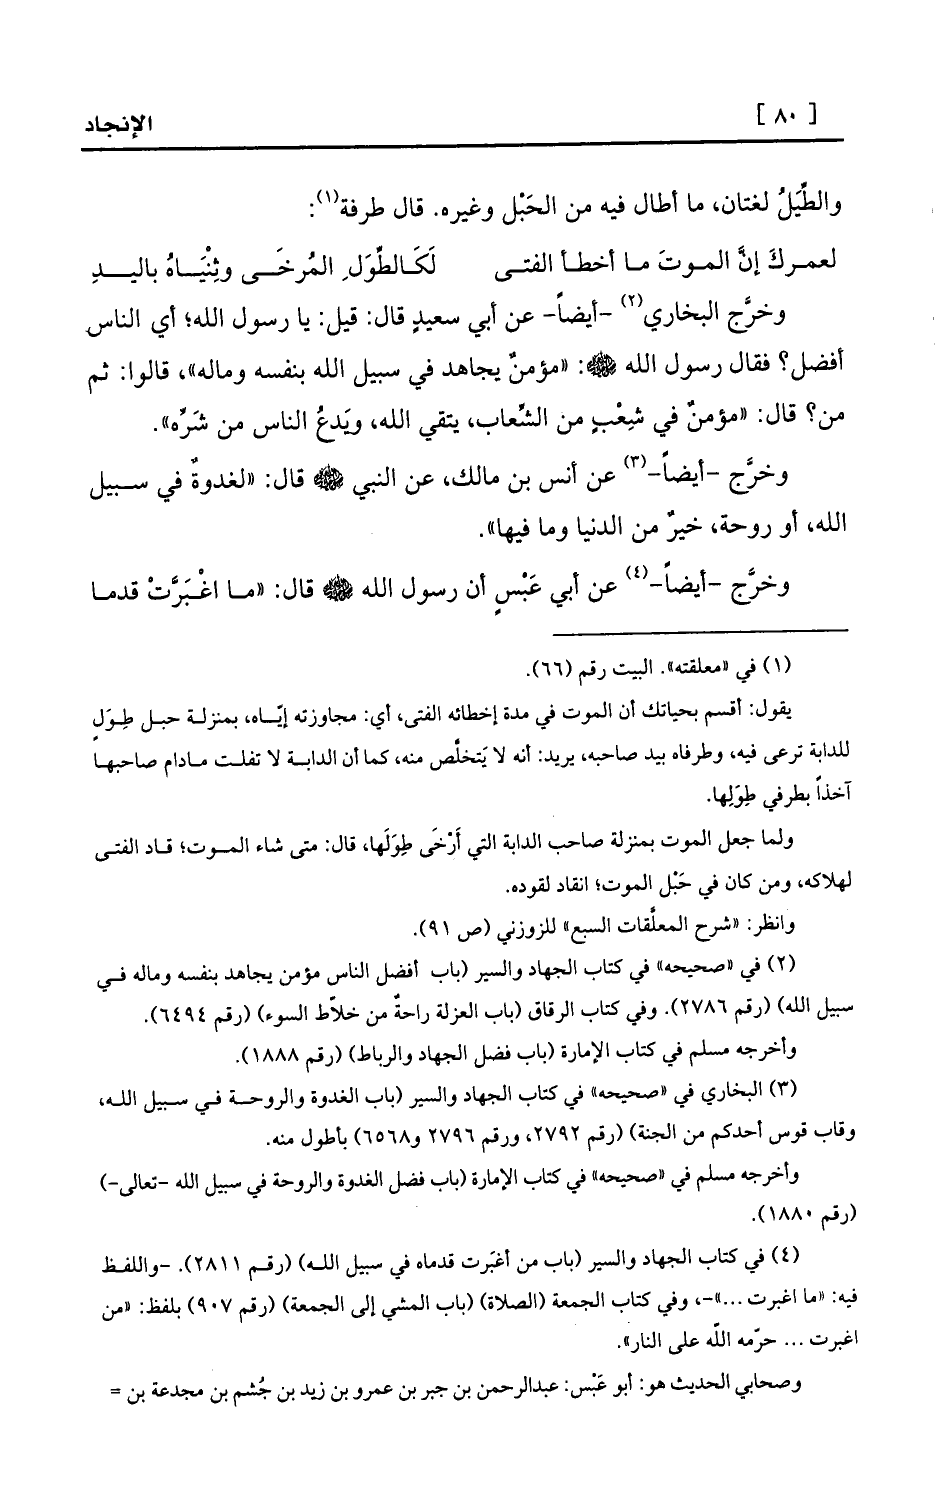 [ ٨٠ ] الإنجاد
والطِّيَلُ لغتان، ما أطال فيه من الحَبْل وغيره. قال طرفة(١):
لعمركَ إنَّ الموتَ ما أخطأ الفتى لَكَالطِّوَلِ المُرخَى وثِنْيَاهُ باليدِ
وخرَّج البخاري(٢) -أيضاً- عن أبي سعيدٍ قال: قيل: يا رسول الله؛ أي الناس
أفضل؟ فقال رسول الله ﷺ: «مؤمنٌ يجاهد في سبيل الله بنفسه وماله»، قالوا: ثم
من؟ قال: «مؤمنٌ في شِعْبٍ من الشِّعاب، يتقي الله، ويَدعُ الناس من شَرِّه».
وخرَّج -أيضاً-(٣) عن أنس بن مالك، عن النبي ﷺ قال: «لغدوةٌ في سبيل
الله، أو روحة، خيرٌ من الدنيا وما فيها».
وخرَّج -أيضاً-(٤) عن أبي عَبْسٍ أن رسول الله ﷺ قال: «ما اغْبَرَّتْ قدما
(١) في «معلقته». البيت رقم (٦٦).
يقول: أقسم بحياتك أن الموت في مدة إخطائه الفتى، أي: مجاوزته إيّاه، بمنزلة حبل طِوَلٍ
للدابة ترعى فيه، وطرفاه بيد صاحبه، يريد: أنه لا يَتخلَّص منه، كما أن الدابة لا تفلت مادام صاحبها
آخذاً بطرفي طِوَلِها.
ولما جعل الموت بمنزلة صاحب الدابة التي أَرْخَى طِوَلَها، قال: متى شاء الموت؛ قاد الفتى
لهلاكه، ومن كان في حَبْل الموت؛ انقاد لقوده.
وانظر: «شرح المعلَّقات السبع» للزوزني (ص ٩١).
(٢) في «صحيحه» في كتاب الجهاد والسير (باب أفضل الناس مؤمن يجاهد بنفسه وماله في
سبيل الله) (رقم ٢٧٨٦). وفي كتاب الرقاق (باب العزلة راحةٌ من خلاّط السوء) (رقم ٦٤٩٤).
وأخرجه مسلم في كتاب الإمارة (باب فضل الجهاد والرباط) (رقم ١٨٨٨).
(٣) البخاري في «صحيحه» في كتاب الجهاد والسير (باب الغدوة والروحة في سبيل الله،
وقاب قوس أحدكم من الجنة) (رقم ٢٧٩٢، ورقم ٢٧٩٦ و٦٥٦٨) بأطول منه.
وأخرجه مسلم في «صحيحه» في كتاب الإمارة (باب فضل الغدوة والروحة في سبيل الله -تعالى-)
(رقم ١٨٨٠).
(٤) في كتاب الجهاد والسير (باب من أغبَرت قدماه في سبيل الله) (رقم ٢٨١١). -واللفظ
فيه: «ما اغبرت ...»-، وفي كتاب الجمعة (الصلاة) (باب المشي إلى الجمعة) (رقم ٩٠٧) بلفظ: «من
اغبرت ... حرّمه اللّه على النار».
وصحابي الحديث هو: أبو عَبْس: عبدالرحمن بن جبر بن عمرو بن زيد بن جُشم بن مجدعة بن =